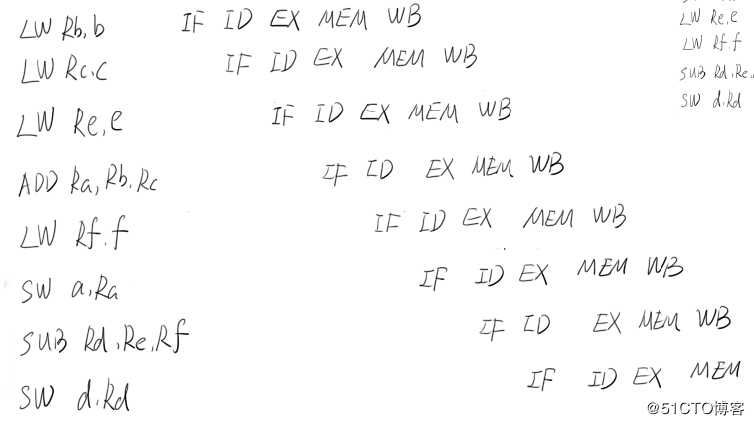 LW Rb,b IF ID EX MEM WB
LW Rc,c IF ID EX MEM WB
LW Re,e IF ID EX MEM WB
ADD Ra,Rb,Rc IF ID EX MEM WB
LW Rf,f IF ID EX MEM WB
SW a,Ra IF ID EX MEM WB
SUB Rd,Re,Rf IF ID EX MEM WB
SW d,Rd IF ID EX MEM
LW Re,e
LW Rf,f
SUB Rd,Re,
SW d,Rd
@51CTO博客